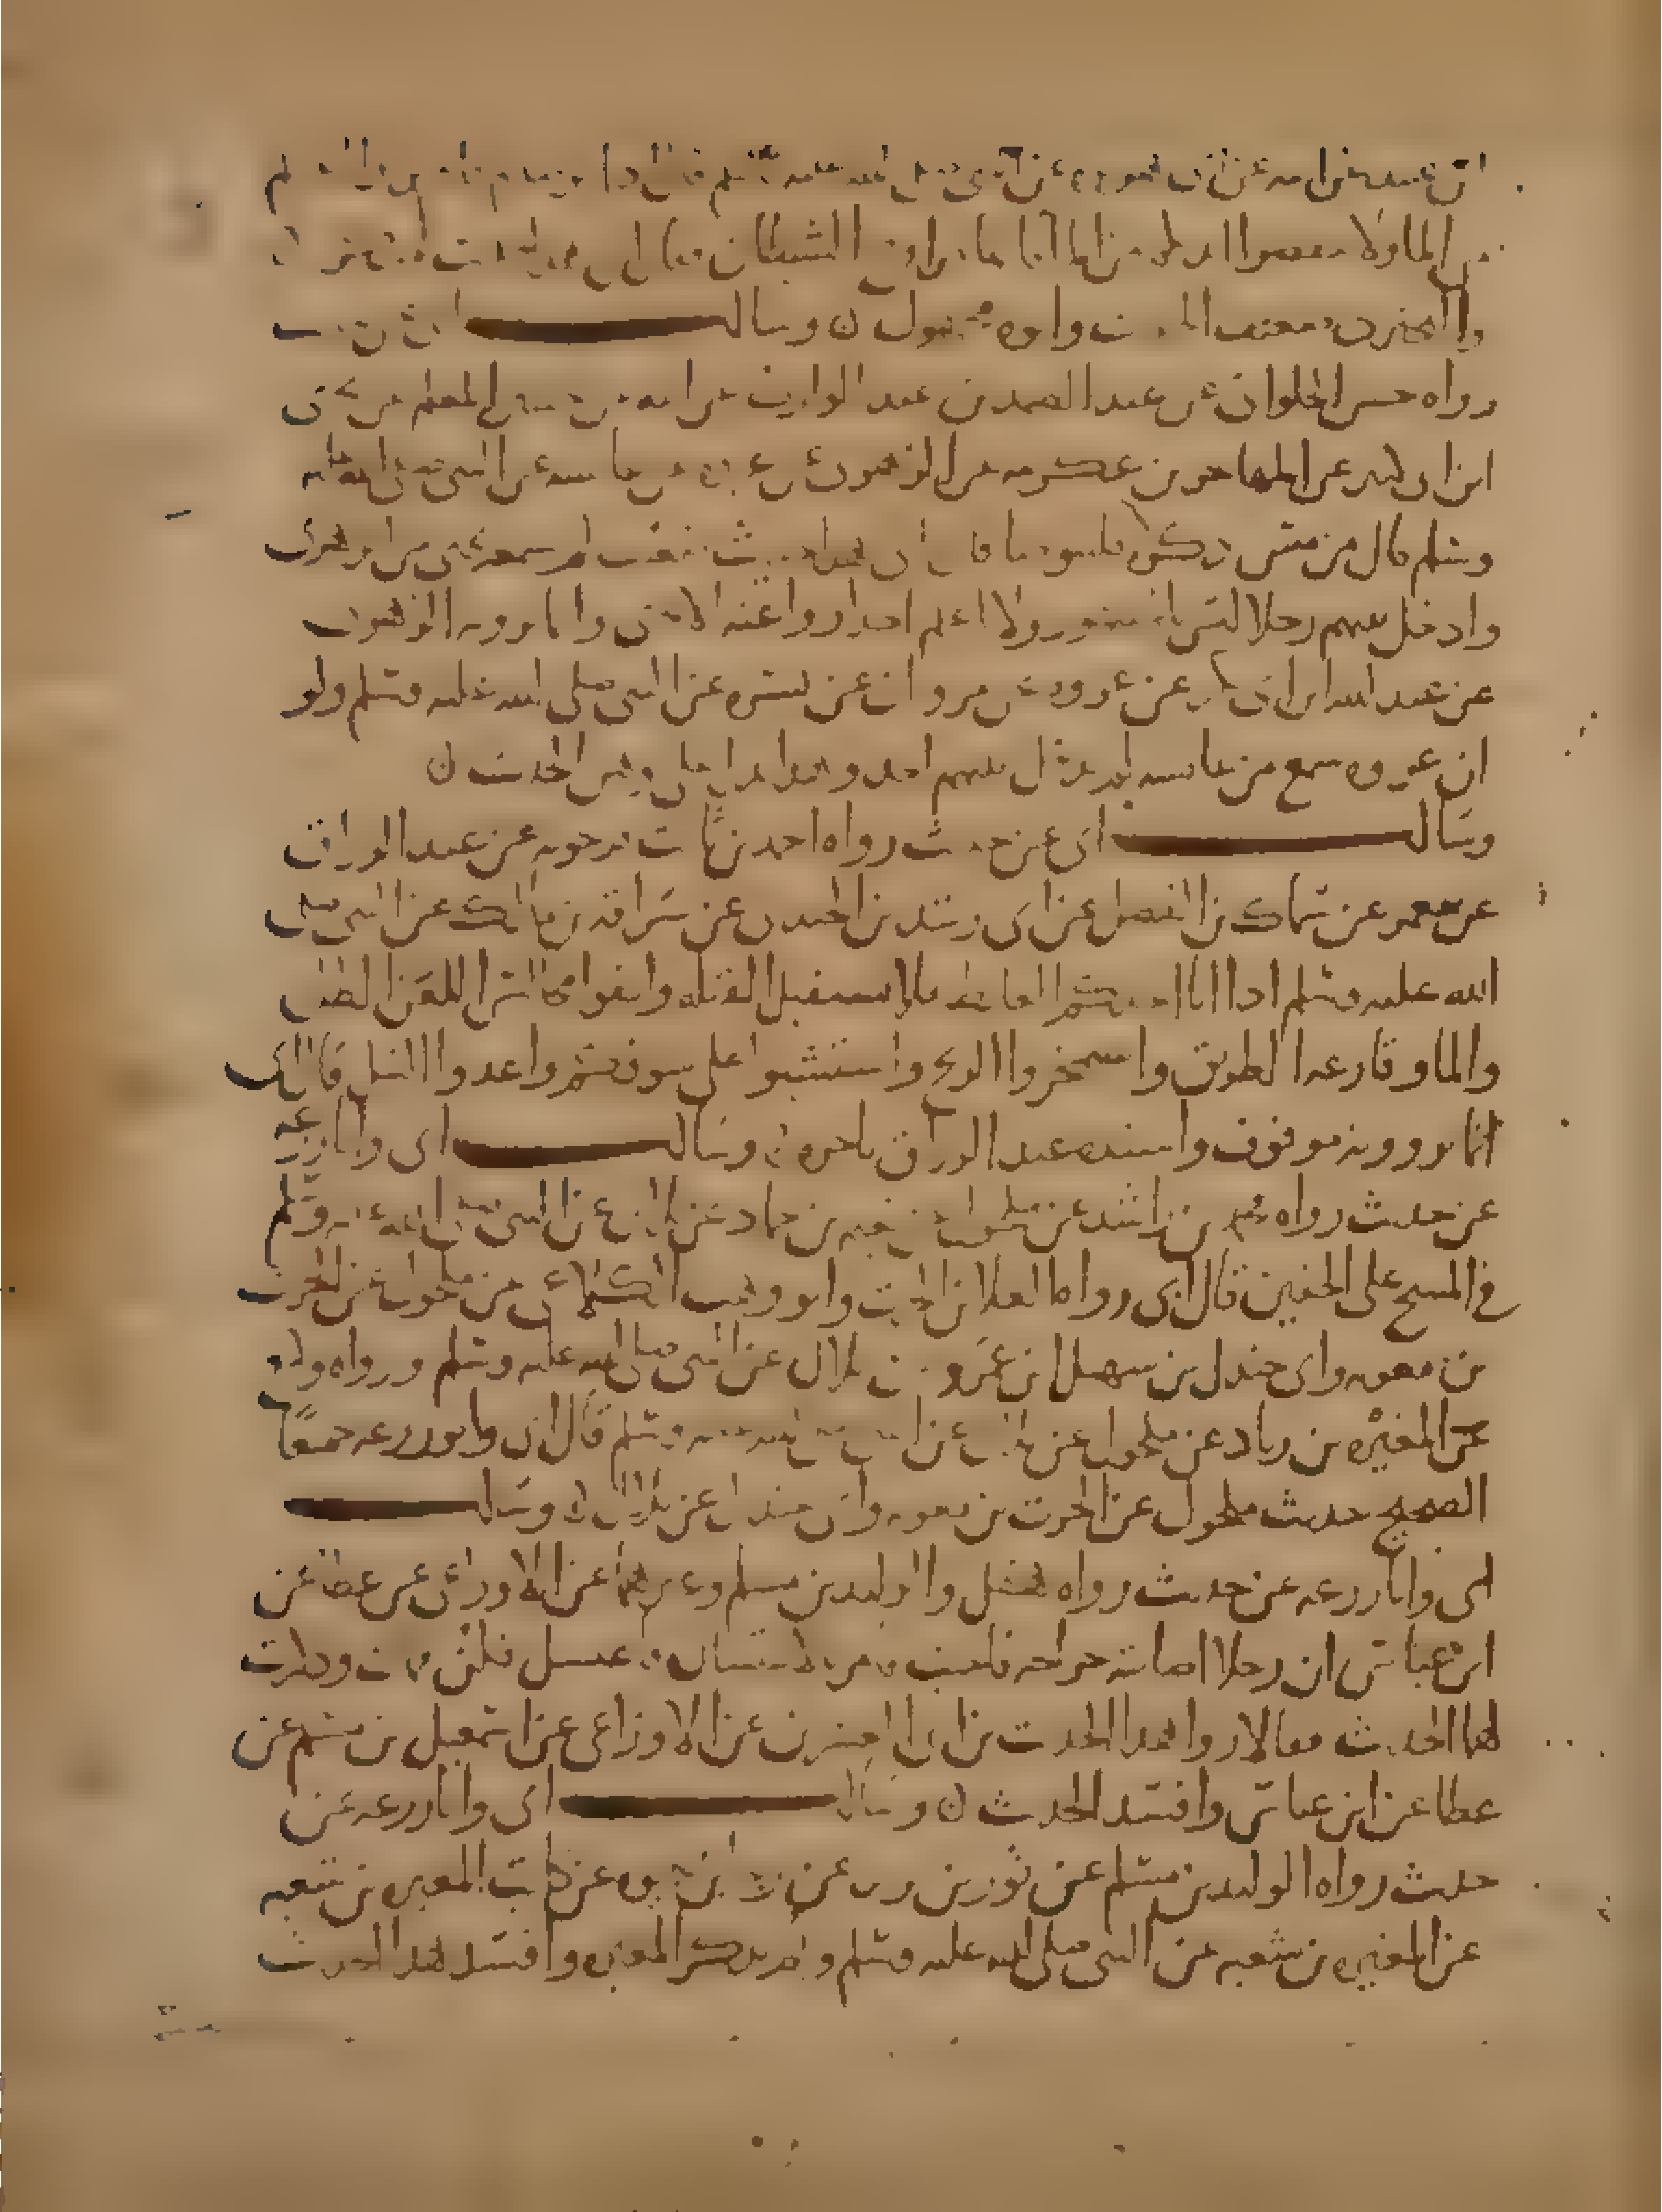 بن عبيد عن ابيه عن ابي هريره عن النبي صلى الله عليه وسلم قال اذا
الما ولا تنفضوا ايديكم من الما فانها مراوح الشيطان فقال ابي هذا حديث منكر
والبختري ضعيف الحديث وابوه مجهول ن وسالت ابي عن حديث
رواه حسن الحلواني عن عبد الصمد بن عبد الوارث عن ابيه عن حسين المعلم عن يحيى
ابن ابي كثير عن المهاجر بن عكرمه عن الزهري عن عروه عن عايشه عن النبي صلى الله عليه
وسلم قال من مس ذكره فليتوضا قال ابي هذا حديث ضعيف لم يسمعه يحيى من الزهري
وادخل بينهم رجلا ليس بالمشهور ولا اعلم احدا روا عنه الا يحيى وانما يرويه الزهري
عن عبد الله ابن ابي بكر عن عروه عن مروان عن بسره عن النبي صلى الله عليه وسلم ولو
ان عروه سمع من عايشه لم يدخل بينهم احد وهذا يدل على وهن الحديث ن
وسالت ابي عن حديث رواه احمد بن ثابت فرخويه عن عبد الرزاق
عن معمر عن سماك بن الفضل عن ابي رشدين الجندي عن سراقه بن مالك عن النبي صلى
الله عليه وسلم اذا اتا احدكم الغايط فلا يستقبل القبله واتقوا مجالس اللعن الظل
والما وقارعه الطريق واستمخروا الريح واستشبوا على سوقكم واعدوا النبل قال ابي
انما يروونه موقوف واسنده عبد الرزاق باخره ن وسالت ابي وابا زرعه
عن حديث رواه محمد بن راشد عن مكحول عن نعيم بن حماد عن بلال عن النبي صلى الله عليه وسلم
في المسح على الخفين قال ابي رواه العلا بن الحرث وابو وهب الكلاعي عن مكحول عن الحرث
بن معويه وابي جندل بن سهيل ابن عمرو عن بلال عن النبي صلى الله عليه وسلم ورواه
عن المغيره بن زياد عن مكحول عن بلال عن النبي صلى الله عليه وسلم قال ابي وابو زرعه جميعا
الصحيح حديث مكحول عن الحرث بن معويه وابي جندل عن بلال ن وسالت
ابي وابا زرعه عن حديث رواه هقل والوليد بن مسلم وغيرهما عن الاوزاعي عن عطا عن
ابن عباس ان رجلا اصابته جراحه فاجنب فامر بالاغتسال فاغتسل فكز فمات وذكرت
لهما الحديث فقالا روا هذا الحديث بن ابي العشرين عن الاوزاعي عن اسمعيل بن مسلم عن
عطا عن ابن عباس وافسد الحديث ن وسالت ابي وابا زرعه عن
حديث رواه الوليد بن مسلم عن ثور بن يزيد عن رجا بن حيوه عن كاتب المغيره بن شعبه
عن المغيره بن شعبه عن النبي صلى الله عليه وسلم ولم يذكر المغيره وافسد هذا الحديث